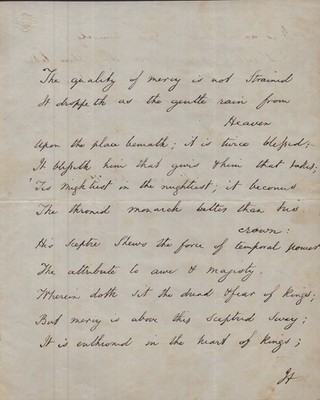 The quality of mercy is not Strained
It droppeth as the gentle rain from
Heaven
Upon the place beneath; it is twice blessed;
It blesseth him that gives & him that takes;
'Tis mightiest in the mightiest; it becomes
The throned monarch better than his
crown:
His Sceptre Shews the force of temporal power
The attribute to awe & Majesty.
Wherein doth sit the dread & fear of Kings;
But mercy is above this Sceptred Sway;
It is enthroned in the heart of Kings;